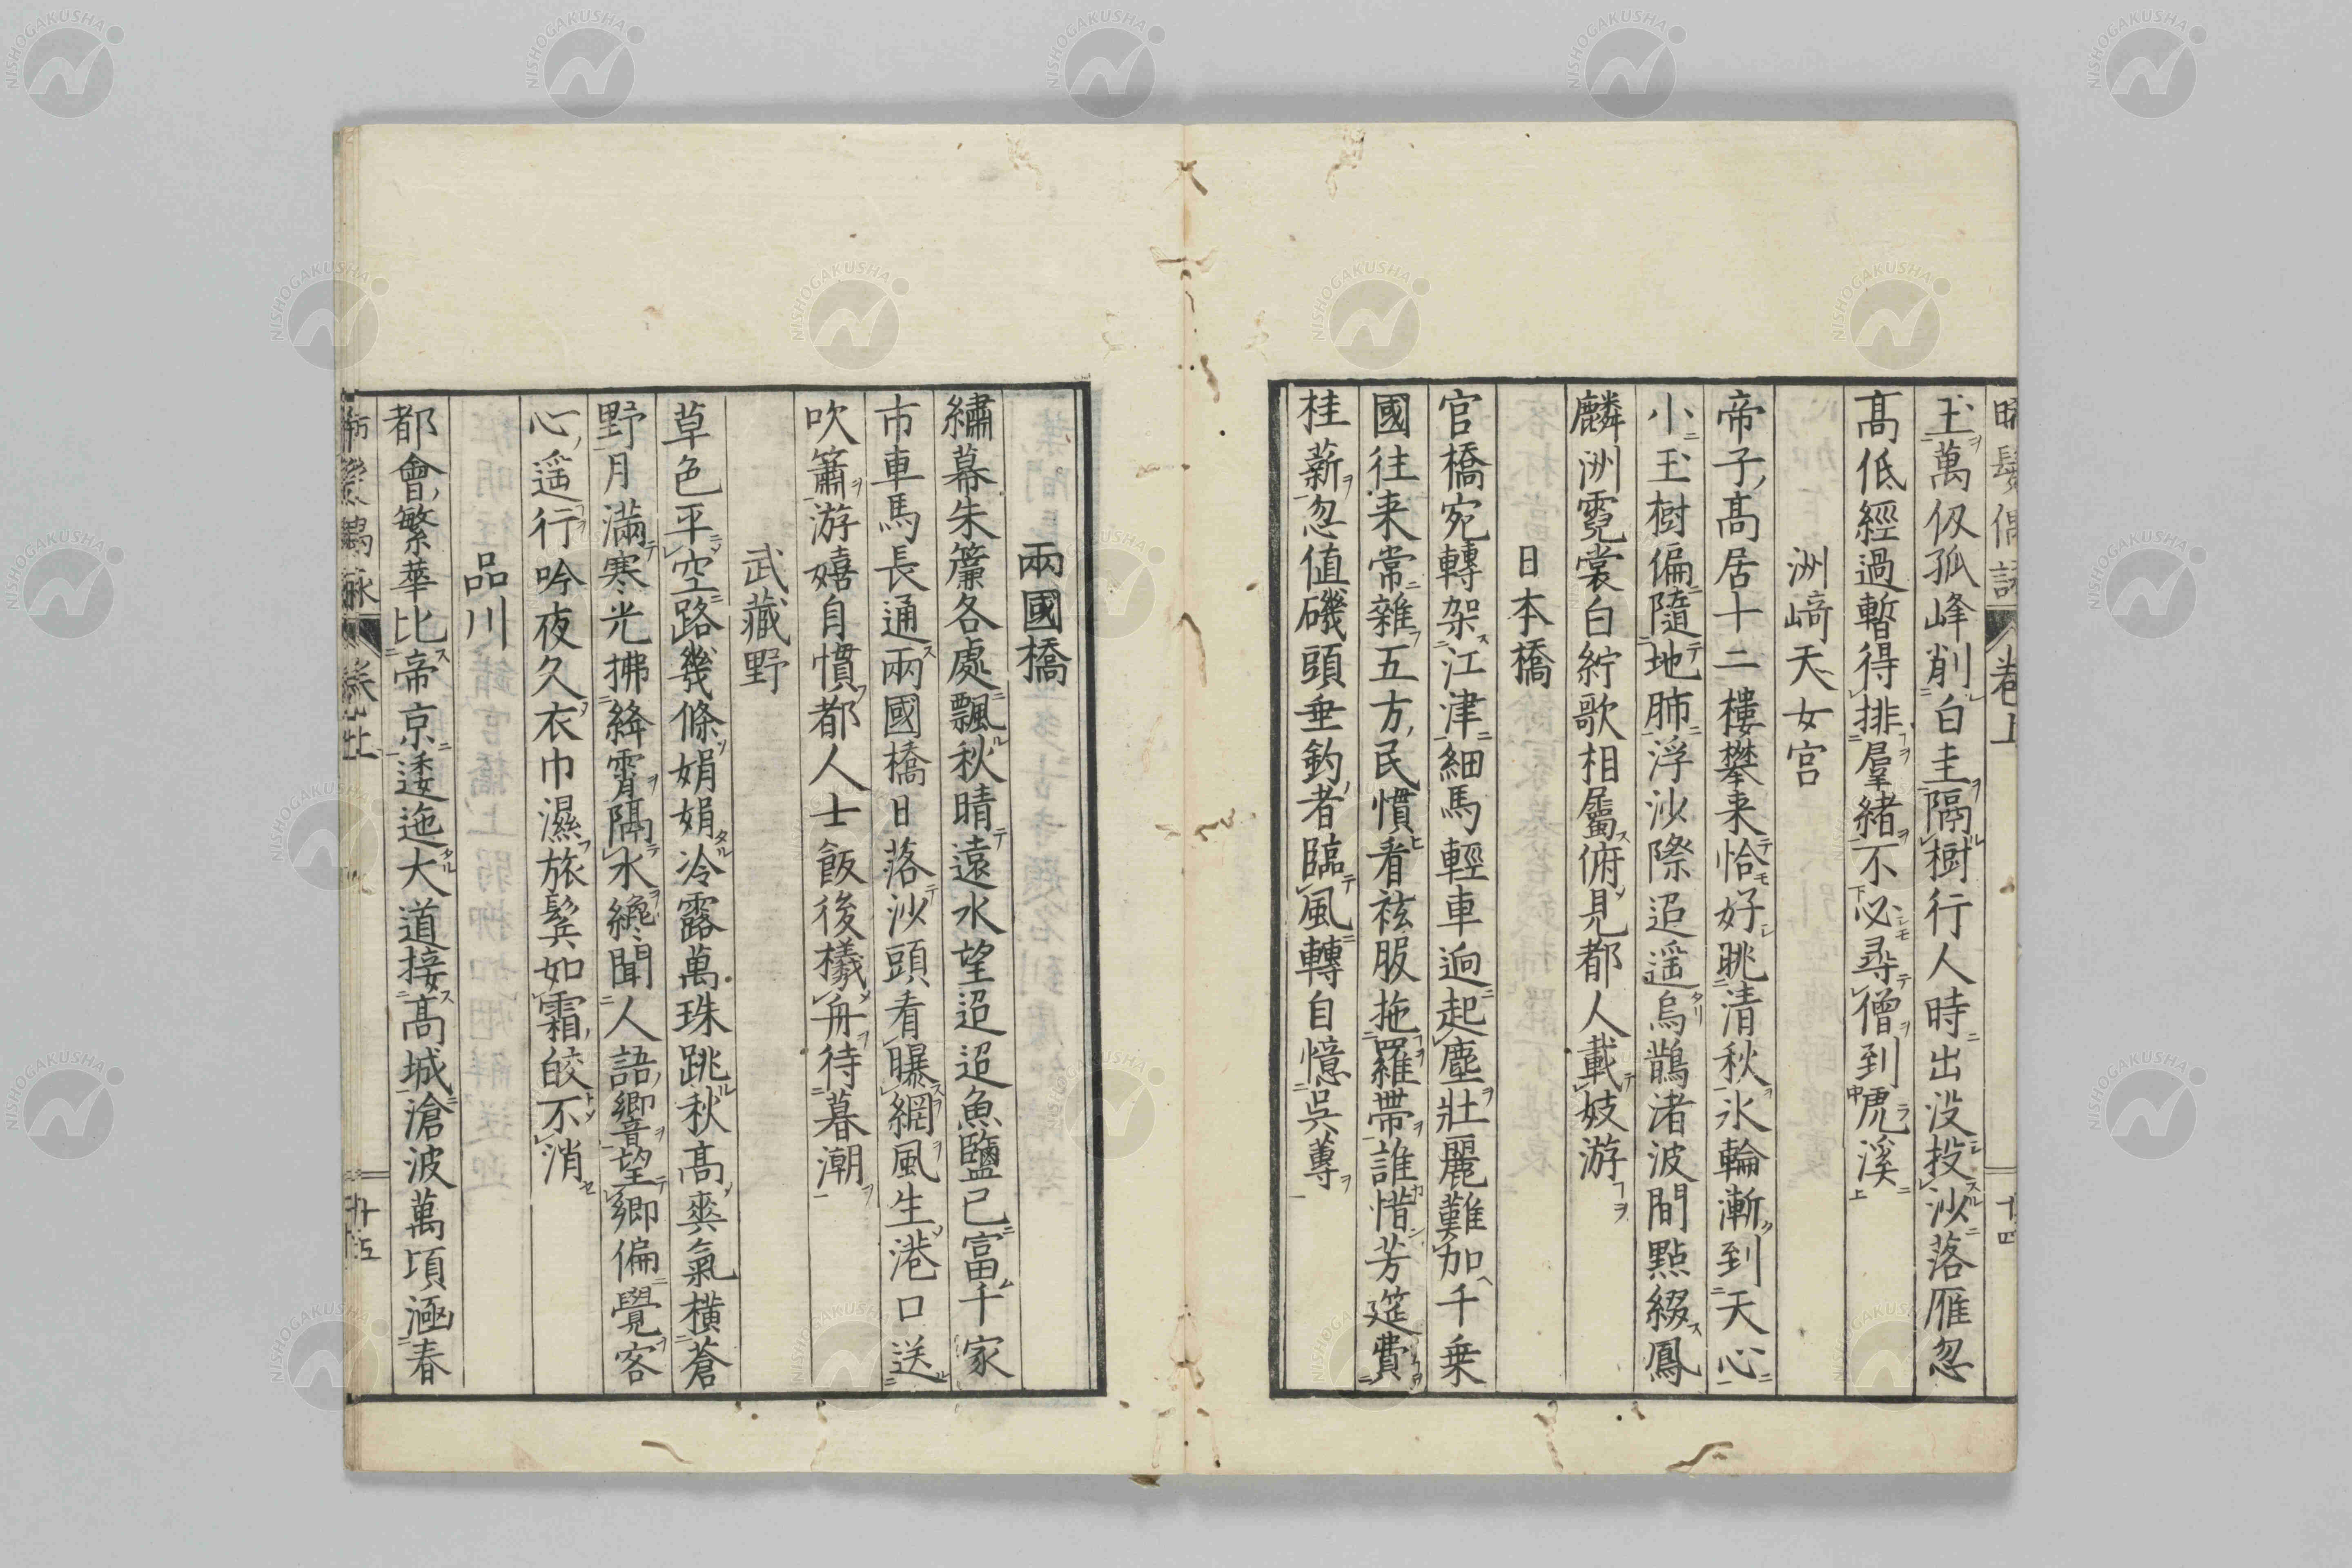 玉萬仭孤峰削白圭隔樹行人時出没投沙落雁忽
髙低經過暫得排羣緒不必尋僧到虎溪
洲﨑天女宮
帝子髙居十二樓攀来恰好眺清秋氷輪漸到天心
小玉樹偏隨地肺浮沙際迢遥烏鵲渚波間點綴鳳
麟洲霓裳白紵歌相屬俯見都人載妓游
日本橋
官橋宛轉架江津細馬輕車逈起塵壯麗難加千乗
國往来常雜五方民慣看袨服拖羅帶誰惜芳筵費
桂薪忽値磯頭垂釣者臨風轉自憶呉蓴
巻上
十四
兩國橋
繡幕朱簾各處飄秋晴遠水望迢迢魚鹽已富千家
市車馬長通兩國橋日落沙頭看曝網風生港口送
吹簫游嬉自慣都人士飯後檥舟待暮潮
武藏野
草色平空路幾條娟娟冷露萬珠跳秋髙爽氣横蒼
野月滿寒光拂絳霄隔水纔聞人語響望鄉偏覺客
心遥行吟夜久衣巾濕旅鬂如霜皎不消
品川
都會繁華比帝京逶迤大道接髙城滄波萬頃涵春
NISHOGAKUSHA